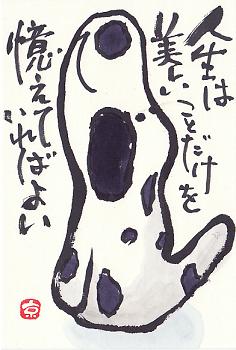 人生は
美しいことだけを
憶えて
いればよい
京